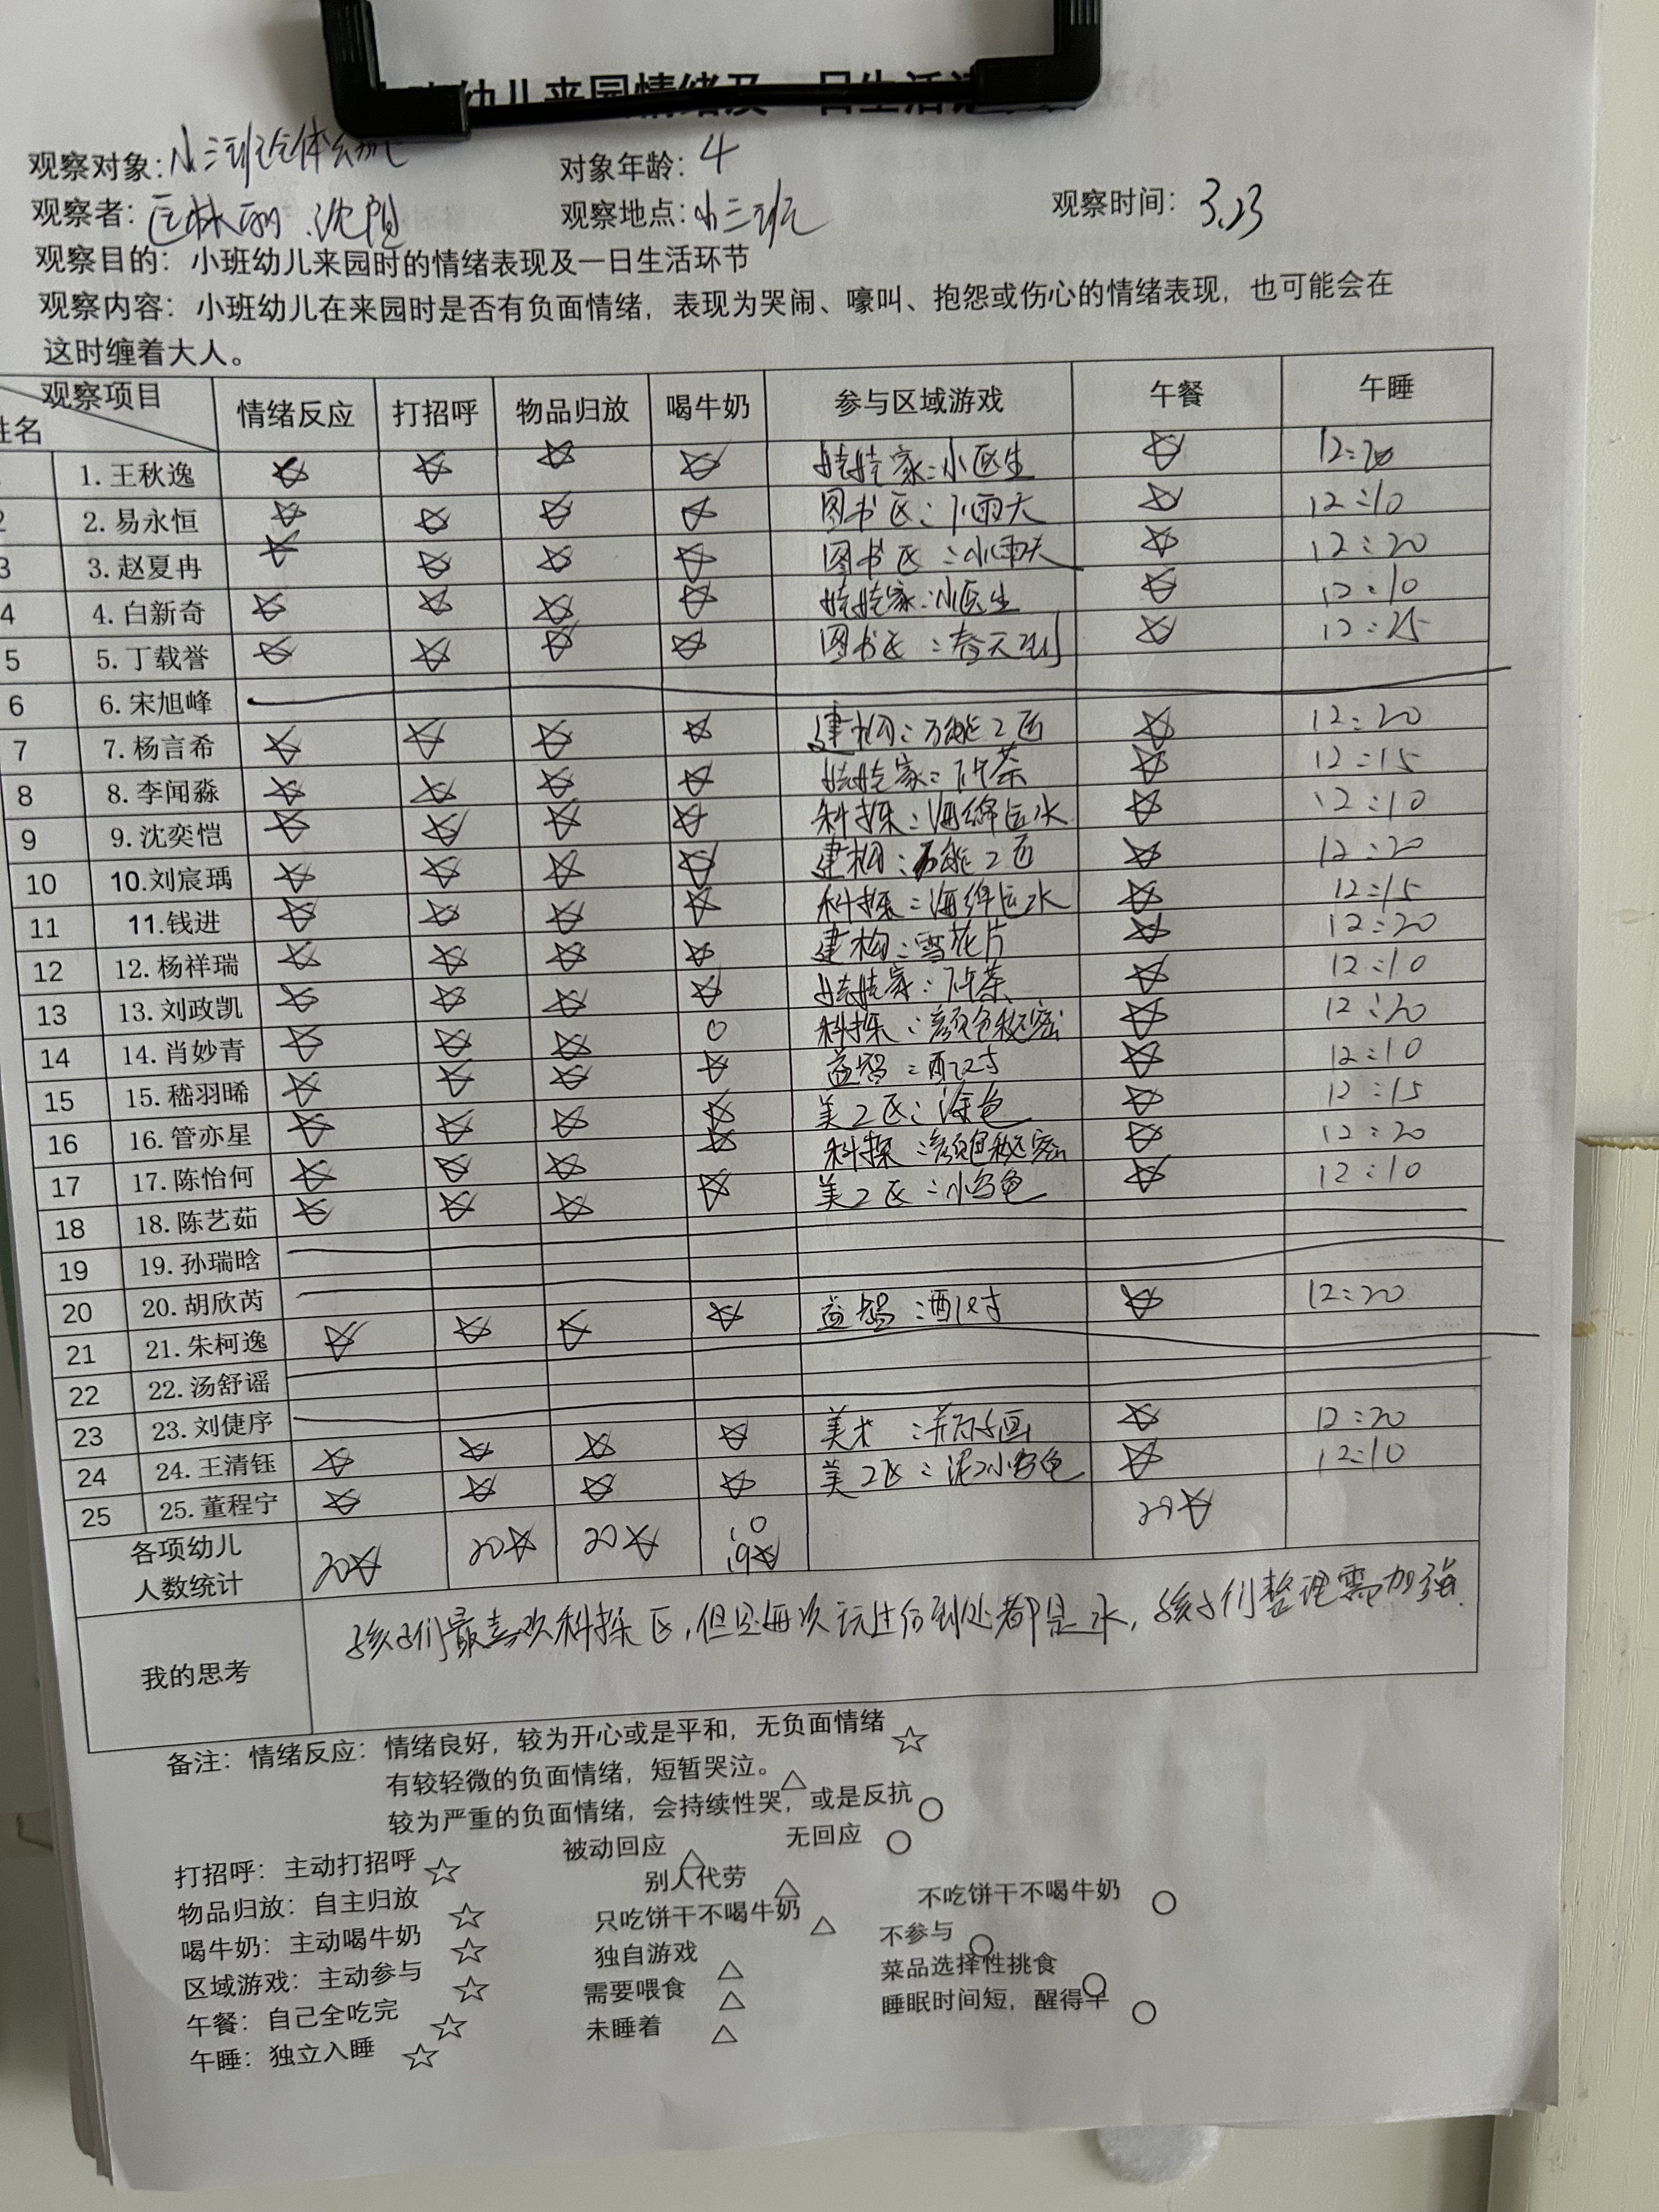 幼儿来园情绪及一日生活
观察对象：小三班全体幼儿 对象年龄：4
观察者： 观察地点：小三班 观察时间：3.23
观察目的：小班幼儿来园时的情绪表现及一日生活环节
观察内容：小班幼儿在来园时是否有负面情绪，表现为哭闹、嚎叫、抱怨或伤心的情绪表现，也可能会在
这时缠着大人。
观察项目 姓名 情绪反应 打招呼 物品归放 喝牛奶 参与区域游戏 午餐 午睡
1. 王秋逸 ☆ ☆ ☆ ☆ 娃娃家：小医生 ☆ 12:20
2 2. 易永恒 ☆ ☆ ☆ ☆ 图书区：下雨天 ☆ 12:10
3 3. 赵夏冉 ☆ ☆ ☆ ☆ 图书区：下雨天 ☆ 12:20
4 4. 白新奇 ☆ ☆ ☆ ☆ 娃娃家：小医生 ☆ 12:10
5 5. 丁载誉 ☆ ☆ ☆ ☆ 图书区：春天到 ☆ 12:25
6 6. 宋旭峰
7 7. 杨言希 ☆ ☆ ☆ ☆ 建构：万能工匠 ☆ 12:20
8 8. 李闻淼 ☆ ☆ ☆ ☆ 娃娃家：下午茶 ☆ 12:15
9 9. 沈奕恺 ☆ ☆ ☆ ☆ 科探：海绵运水 ☆ 12:10
10 10.刘宸瑀 ☆ ☆ ☆ ☆ 建构：万能工匠 ☆ 12:20
11 11.钱进 ☆ ☆ ☆ ☆ 科探：海绵运水 ☆ 12:15
12 12. 杨祥瑞 ☆ ☆ ☆ ☆ 建构：雪花片 ☆ 12:20
13 13. 刘政凯 ☆ ☆ ☆ ☆ 娃娃家：下午茶 ☆ 12:10
14 14. 肖妙青 ☆ ☆ ☆ ○ 科探：颜色秘密 ☆ 12:20
15 15. 嵇羽晞 ☆ ☆ ☆ ☆ 益智：配对 ☆ 12:10
16 16. 管亦星 ☆ ☆ ☆ ☆ 美工区：涂色 ☆ 12:15
17 17. 陈怡何 ☆ ☆ ☆ ☆ 科探：颜色秘密 ☆ 12:20
18 18. 陈艺茹 ☆ ☆ ☆ ☆ 美工区：小乌龟 ☆ 12:10
19 19. 孙瑞晗
20 20. 胡欣芮
21 21. 朱柯逸 ☆ ☆ ☆ ☆ 益智：配对 ☆ 12:20
22 22. 汤舒谣
23 23. 刘倢序
24 24. 王清钰 ☆ ☆ ☆ ☆ 美术： ☆ 12:20
25 25. 董程宁 ☆ ☆ ☆ ☆ 美工区：泥工小乌龟 ☆ 12:10
各项幼儿
人数统计 20☆ 20☆ 20☆ 1○ 19☆ 20☆
我的思考 孩子们最喜欢科探区，但是每次玩过后到处都是水，孩子们整理需加强.
备注：情绪反应：情绪良好，较为开心或是平和，无负面情绪 ☆
有较轻微的负面情绪，短暂哭泣。△
较为严重的负面情绪，会持续性哭，或是反抗 ○
打招呼：主动打招呼 ☆ 被动回应 △ 无回应 ○
物品归放：自主归放 ☆ 别人代劳 △
喝牛奶：主动喝牛奶 ☆ 只吃饼干不喝牛奶 △ 不吃饼干不喝牛奶 ○
区域游戏：主动参与 ☆ 独自游戏 △ 不参与 ○
午餐：自己全吃完 ☆ 需要喂食 △ 菜品选择性挑食 ○
午睡：独立入睡 ☆ 未睡着 △ 睡眠时间短，醒得早 ○